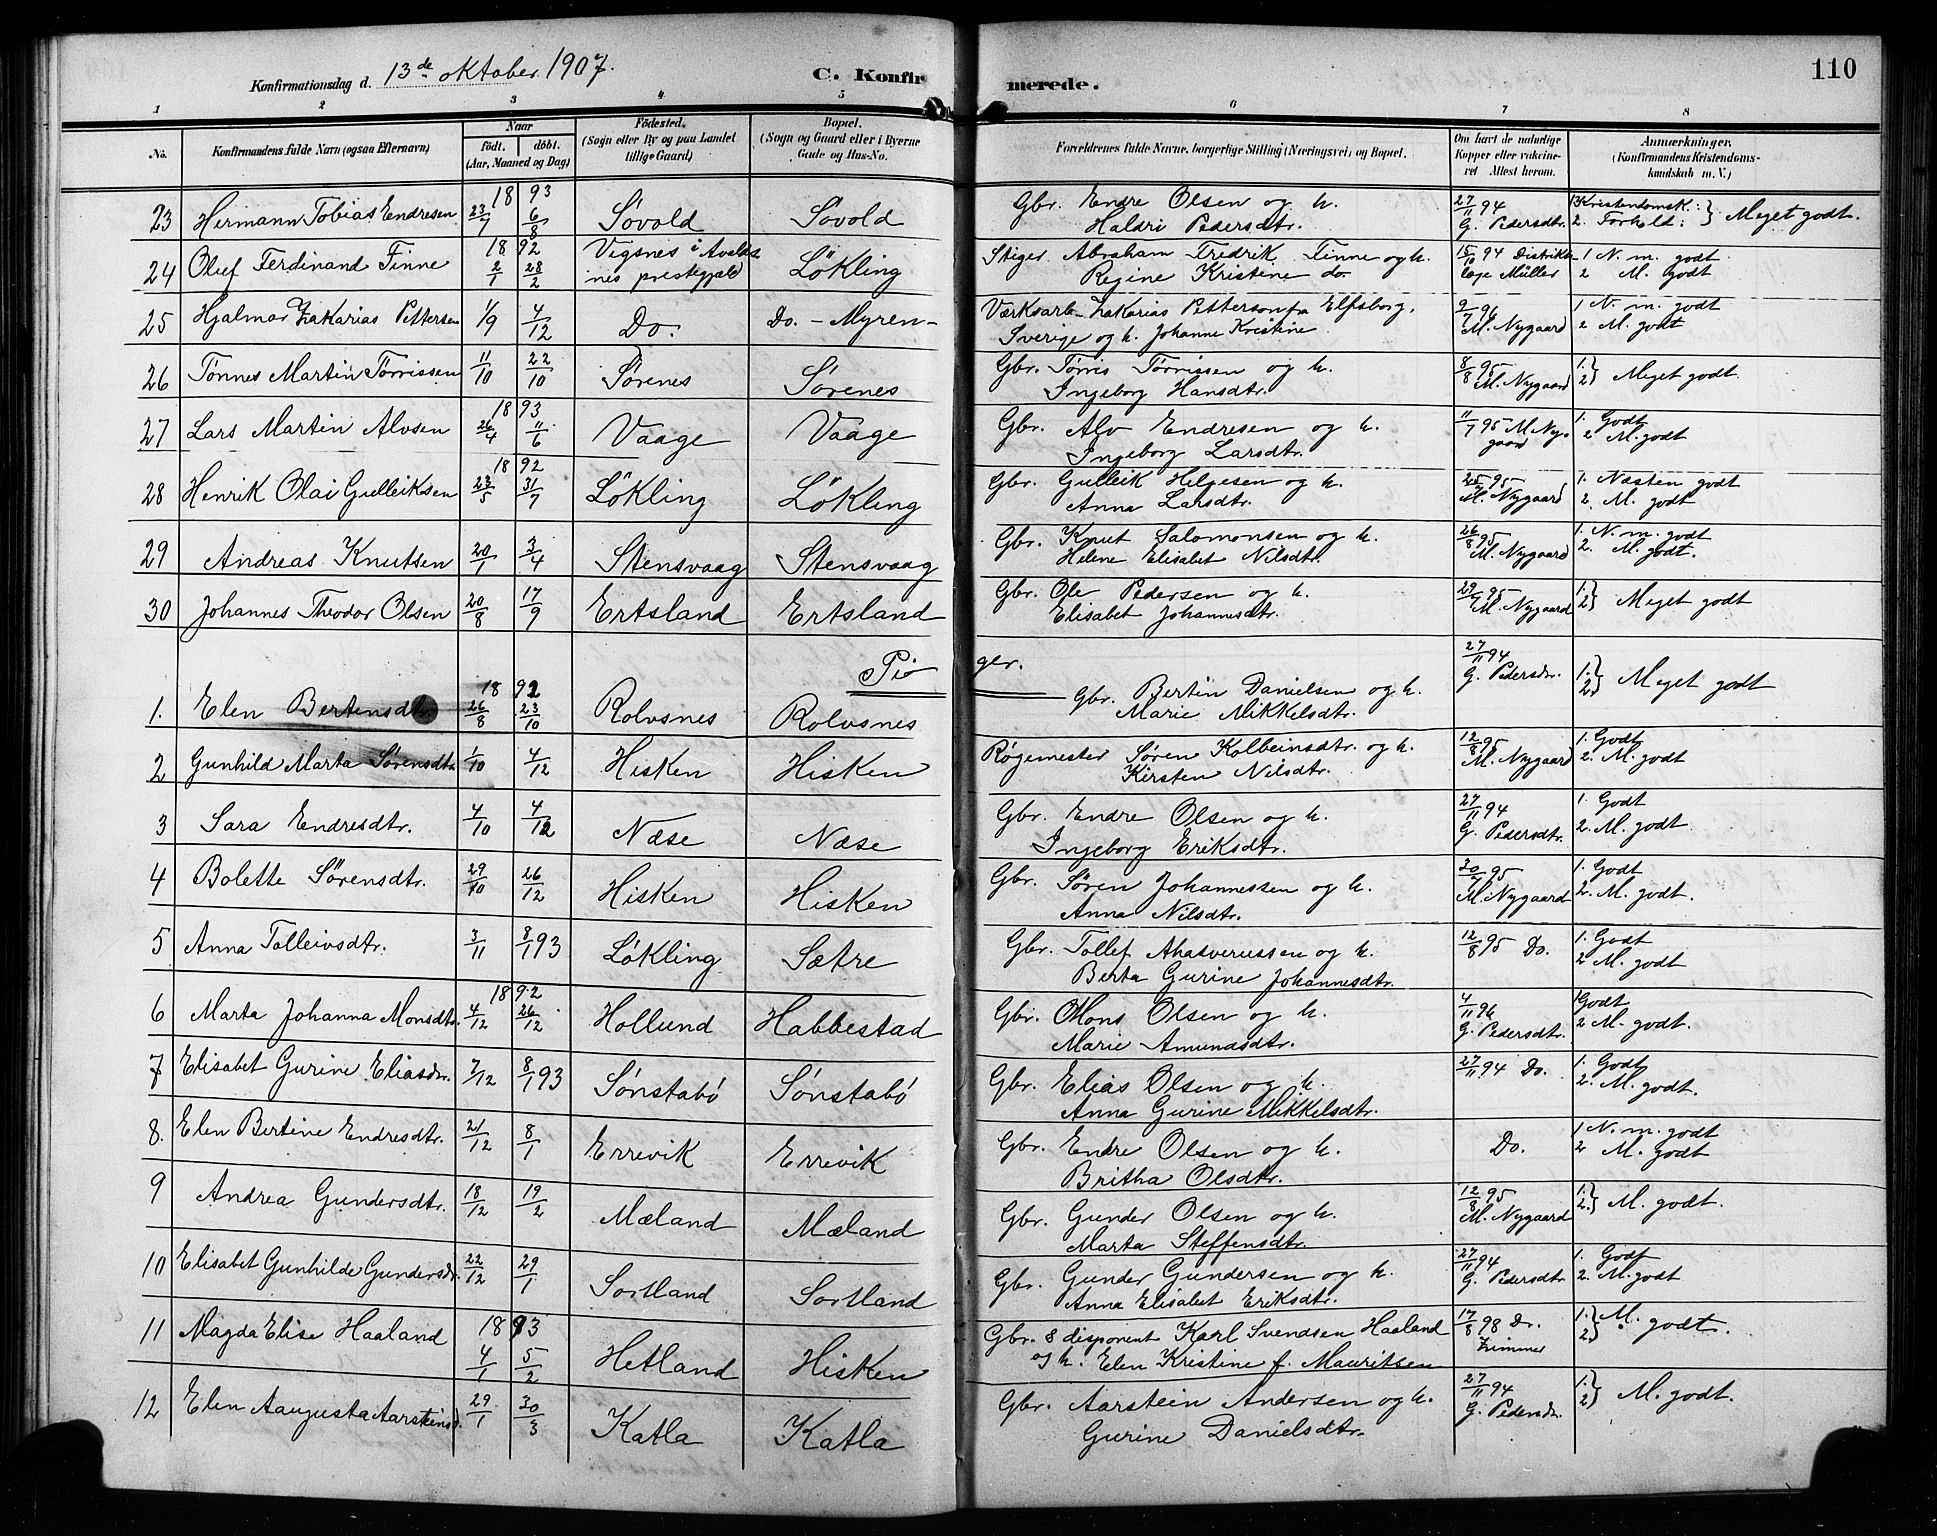 Konfirmationsdag d. 13de oktober 1907.
C. Konfirmerede.
110
1 2 3 4 5 6 7 8
No. Konfirmandens fulde Navn (ogsaa Efternavn) Naar født. døbt. (Aar, Maaned og Dag) Fødested. (Sogn eller By og paa Landet tillige Gaard) Bopæl. (Sogn og Gaard eller i Byerne Gade og Hus-No. Forældrenes fulde Navne, borgerlige Stilling (Næringsvei) og Bopæl. Om havt de naturlige Kopper eller vakcineret Attest herom. Anmærkninger. (Konfirmandens Kristendomskundskab m. V.)
23 Hermann Tobias Endresen 1893 23/7 6/8 Søvold Søvold Gbr. Endre Olsen og h. Haldri Pedersdtr. 27/11 94 G. Pedersdtr. 1. Kristendomsk.: 2. Forhold: } Meget godt.
24 Oluf Ferdinand Finne 1892 2/1 28/2 Vigsnes i Avaldsnes prestegjæld Løkling Stiger Abraham Fredrik Finne og h. Regine Kristine do 15/10 94 Distriktslæge Müller 1 N. m. godt 2 M. godt
25 Hjalmar Zakarias Pettersen 1/9 4/12 Do. Do. - Myren - Værksarb. Zakarias Petterson fra Elfsborg, Sverige og h. Johanne Kristine 9/7 96 M. Nygaard 1 N. m. godt 2 M. godt
26 Tønnes Martin Tørrissen 11/10 22/10 Sørenes Sørenes Gbr. Tørris Tørrissen og h. Ingeborg Hansdtr. 8/8 95 M. Nygaard 1. 2 } Meget godt.
27 Lars Martin Alvsen 1893 26/4 11/6 Vaage Vaage Gbr. Alv Endresen og h. Ingeborg Larsdtr. 11/7 95 M Nygaard 1. Godt 2 M. godt
28 Henrik Olai Gulleiksen 1892 23/5 31/7 Løkling Løkling Gbr. Gulleik Helgesen og h. Anna Larsdtr. 95 M. Nygaard 1. Næsten godt 2. M. godt
29 Andreas Knutsen 20/1 3/4 Stensvaag Stensvaag Gbr. Knut Salomonsen og h. Helene Elisabet Nilsdtr. 26/8 95 M. Nygaard 1. N. m. godt 2. M. godt.
30 Johannes Theodor Olsen 20/8 17/9 Ertsland Ertsland Gbr. Ole Pedersen og h. Elisabet Johannesdtr. 95 M. Nygaard 1. 2 } Meget godt
Piger.
1. Elen Bertensdtr. 1892 26/8 23/10 Rolvsnes Rolvsnes Gbr. Bertin Danielsen og h. Marie Mikkelsdtr. 27/11 94 G. Pedersdr. 1. 2 } Meget godt
2 Gunhild Marta Sørensdtr. 1/10 4/12 Hisken Hisken Røgemester Søren Kolbeinsdtr. og h. Kirsten Nilsdtr. 12/8 95 M. Nygaard 1. Godt 2. M. godt
3 Sara Endresdtr. 4/10 4/12 Næse Næse Gbr. Endre Olsen og h. Ingeborg Eriksdtr. 27/11 94 G. Pedersdtr. 1. Godt 2. M. godt
4 Bolette Sørensdtr. 29/10 26/12 Hisken Hisken Gbr. Søren Johannessen og h. Anna Nilsdtr. 30/7 95 M. Nygaard 1. Godt 2. M. godt.
5 Anna Tolleivsdtr. 3/11 8/1 93 Løkling Sætre Gbr. Tollef Ahasverussen og h. Berta Gurine Johannesdtr. 12/8 95 Do. 1. Godt 2 M. godt
6 Marta Johanna Monsdtr. 1892 4/12 26/12 Hollund Habbestad Gbr. Mons Olsen og h. Marie Amundsdtr. 4/11 96 G. Pedersdtr. 1 Godt 2 M. godt.
7 Elisabet Gurine Eliasdr. 7/12 8/1 93 Sønstabø Sønstabø Gbr. Elias Olsen og h. Anna Gurine Mikkelsdtr. 27/11 94 Do. 1. Godt 2. M. godt.
8. Elen Bertine Endresdtr. 21/12 8/1 Errevik Errevik Gbr. Endre Olsen og h. Britha Olsdtr. Do. 1 N. m. godt 2 M. godt
9 Andrea Gundersdtr. 18/12 19/2 Mæland Mæland Gbr. Gunder Olsen og h. Marta Steffensdtr. 12/8 95 M. Nygaard 1. 2. } M. godt.
10 Elisabet Gunhilde Gundersdr. 22/12 29/1 Sortland Sortland Gbr. Gunder Gundersen og h. Anna Elisabet Eriksdtr. 27/11 94 G. Pedersdtr 1. Godt 2. M. godt
11 Magda Elise Haaland 1893 4/1 5/2 Hetland Hisken Gbr. & disponent Karl Svendsen Haaland og h. Elen Kristine f. Mauritsen 17/8 98 Dr. Zimmer 1. 2 } M. godt.
12 Elen Aaugusta Aarsteinsd. 29/1 30/3 Katla Katla Gbr. Aarstein Andersen og h. Gurine Danielsdtr. 27/11 94 G. Pedersdr. 1. 2 } M. godt.